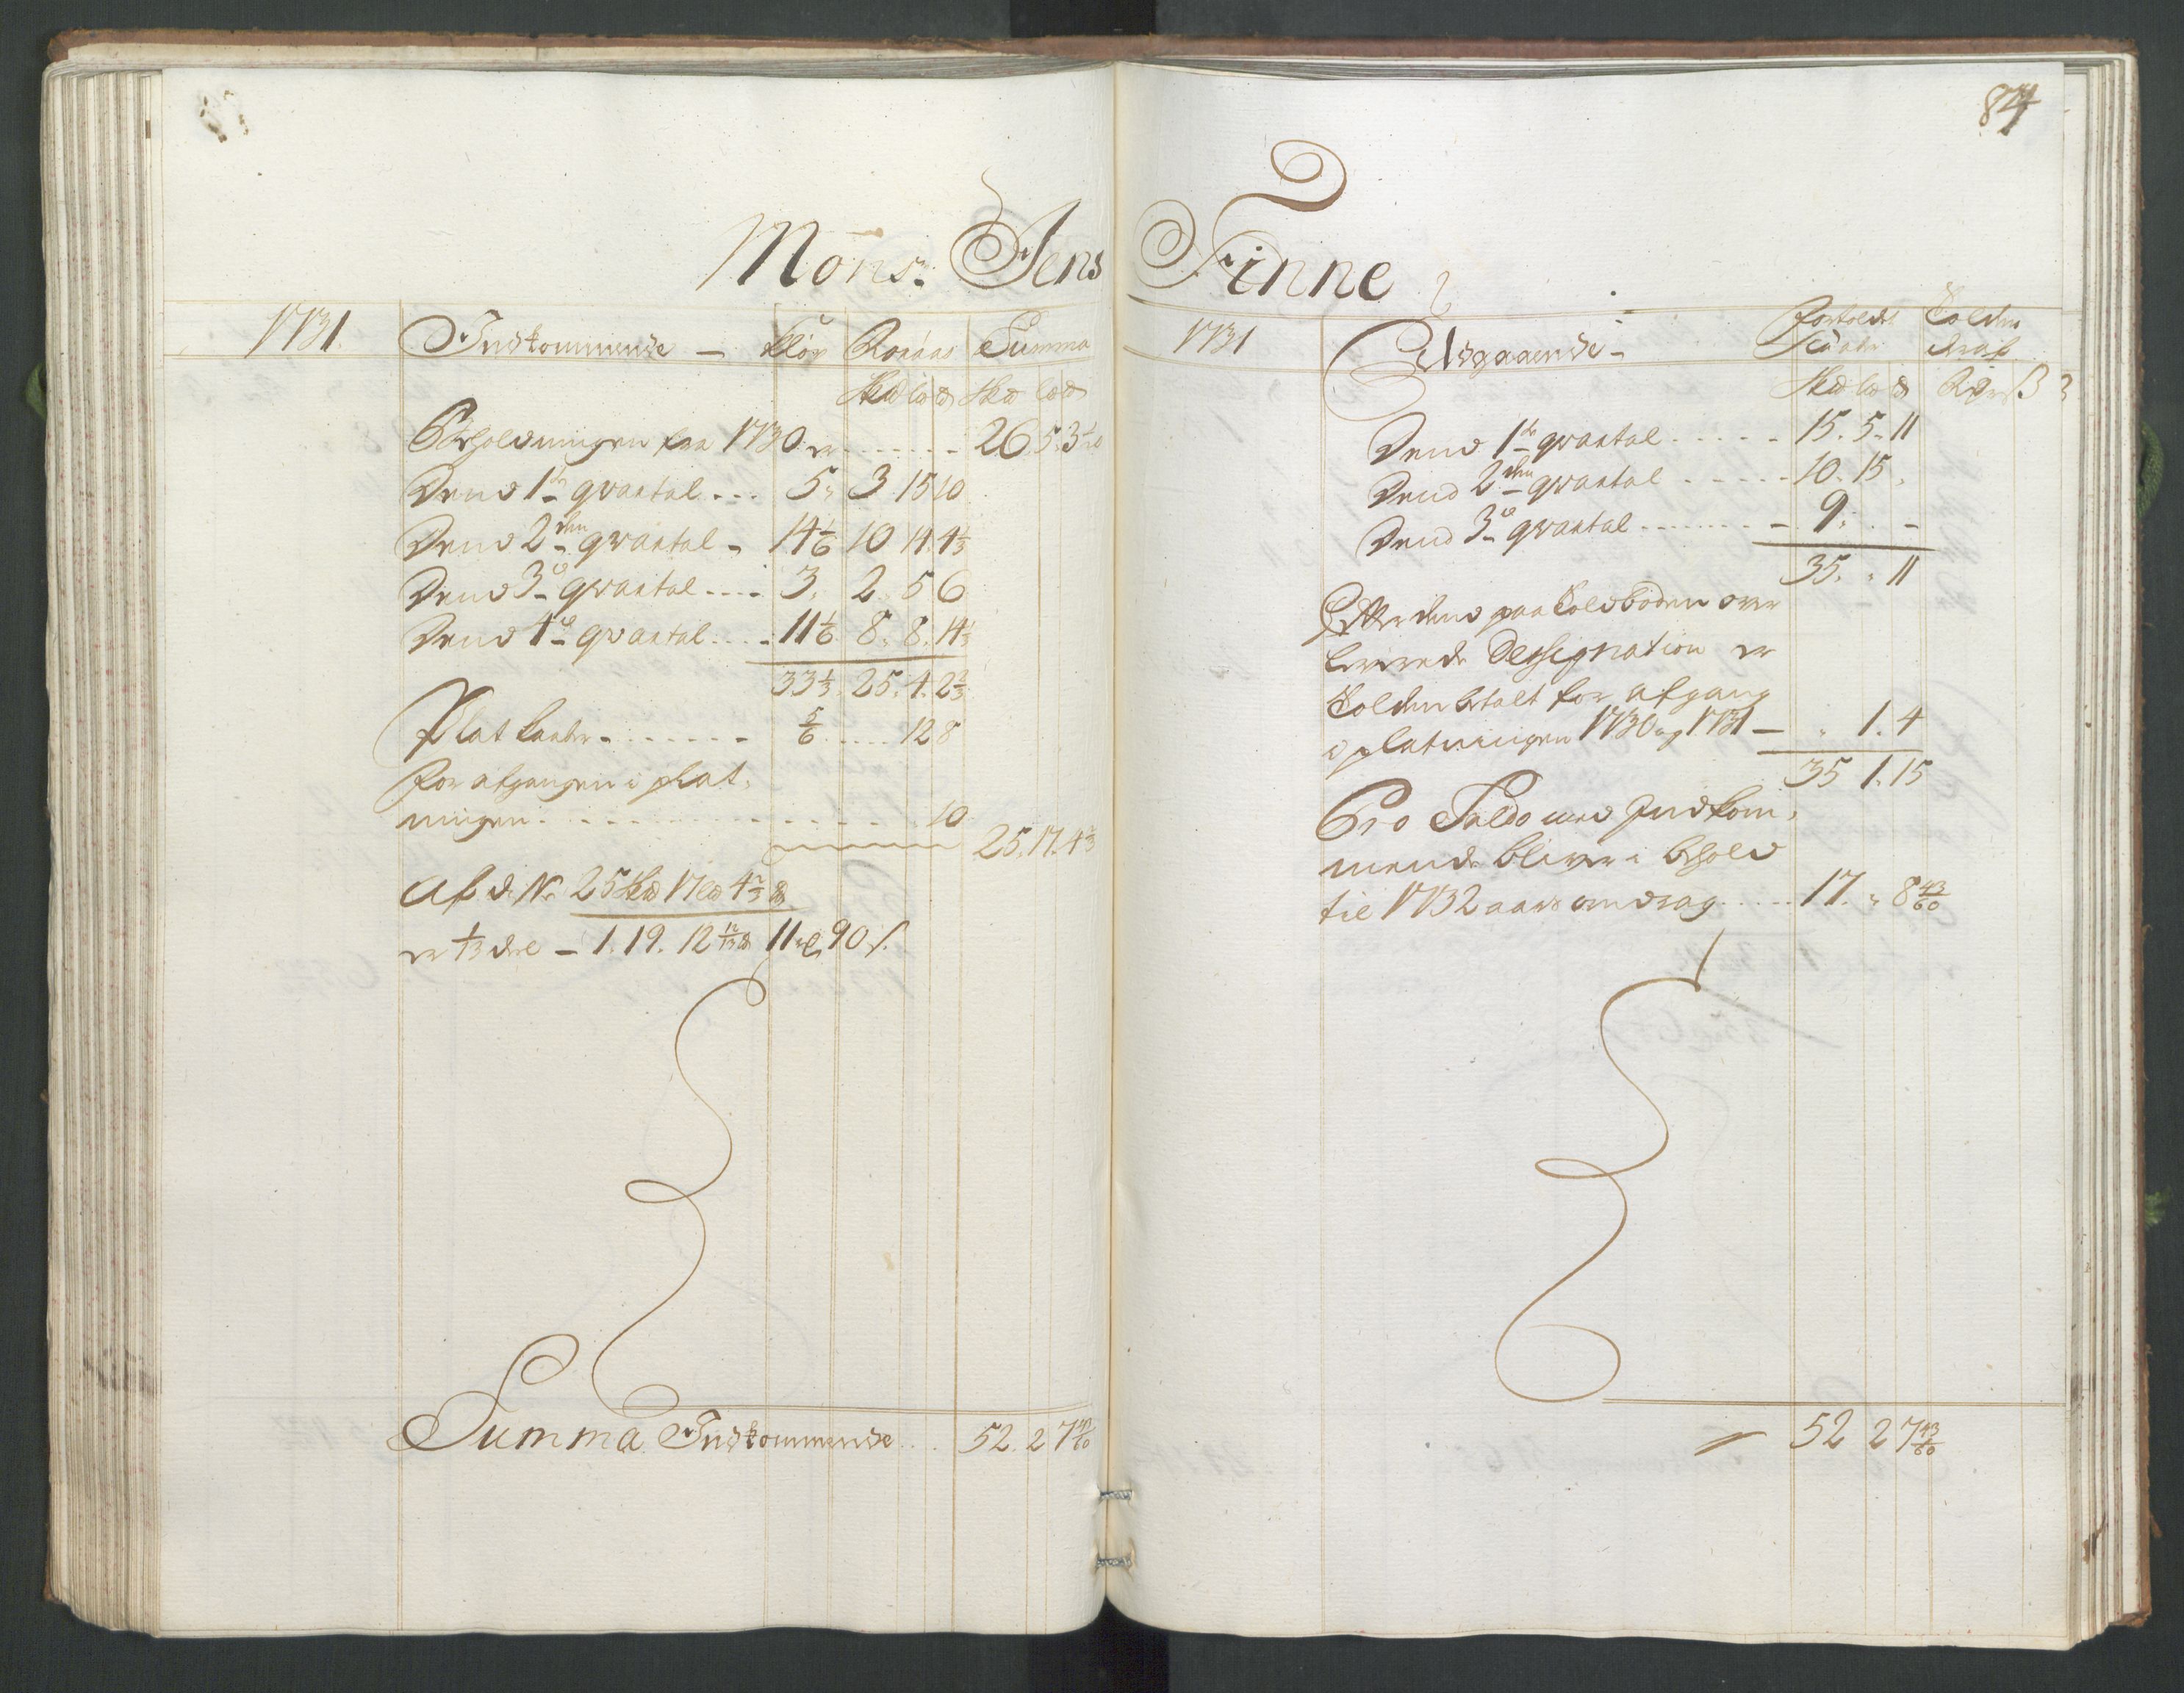 84
Mons: Jens Finne
1731. Indkommende — Kløv Roraas Summa
Sk℔ L℔ ℔ Sk℔ L℔ ℔
Beholdningen fra 1730 er . . . . . . 26 5. 3
Dend 1te qvartal . . . 5 " 3 15 10
Dend 2den qvartal - 14 1/6 10 11. 4 1/3
Dend 3e qvartal . . . . 3. 2. 5 6
Dend 4e qvartal . . . . 11 1/6 8. 8. 14 1/3
33 1/3. 25. 1. 2 2/3
Plat kaaber . . . . . . . 5/6 . . . . . 12 8
for afgangen i plat,
ningen . . . . . . . . . . . . . 10
25. 17. 4 2/3
Af d. No 25 Sk℔ 17 L℔ 4 2/3 ℔
er 1/13 deel — 1. 19. 12 12/13 ℔ 11 90 s.
Summa Indkommende . . . 52. 2 7 43/60
1731 Udgaaende - fortoldet Kaaber Tolden deraf
Sk℔ L℔ ℔ Rdr ß
Dend 1te qvartal . . . . . 15. 5. 11
Dend 2den qvartal . . . . . 10. 15.
Dend 3e qvartal . . . . . . . 9. . -
35. " 11
Efter dend paa Toldboden over
leverede Designation er
Tolden betalt for afgang
i platningen 1730 og 1731 — " 1. 4
35 1. 15
Pro Saldo med Indkom,
mende bliver i behold
til 1732 aars andrag . . . . . 17. " 8 43/60
52 2 7 43/60